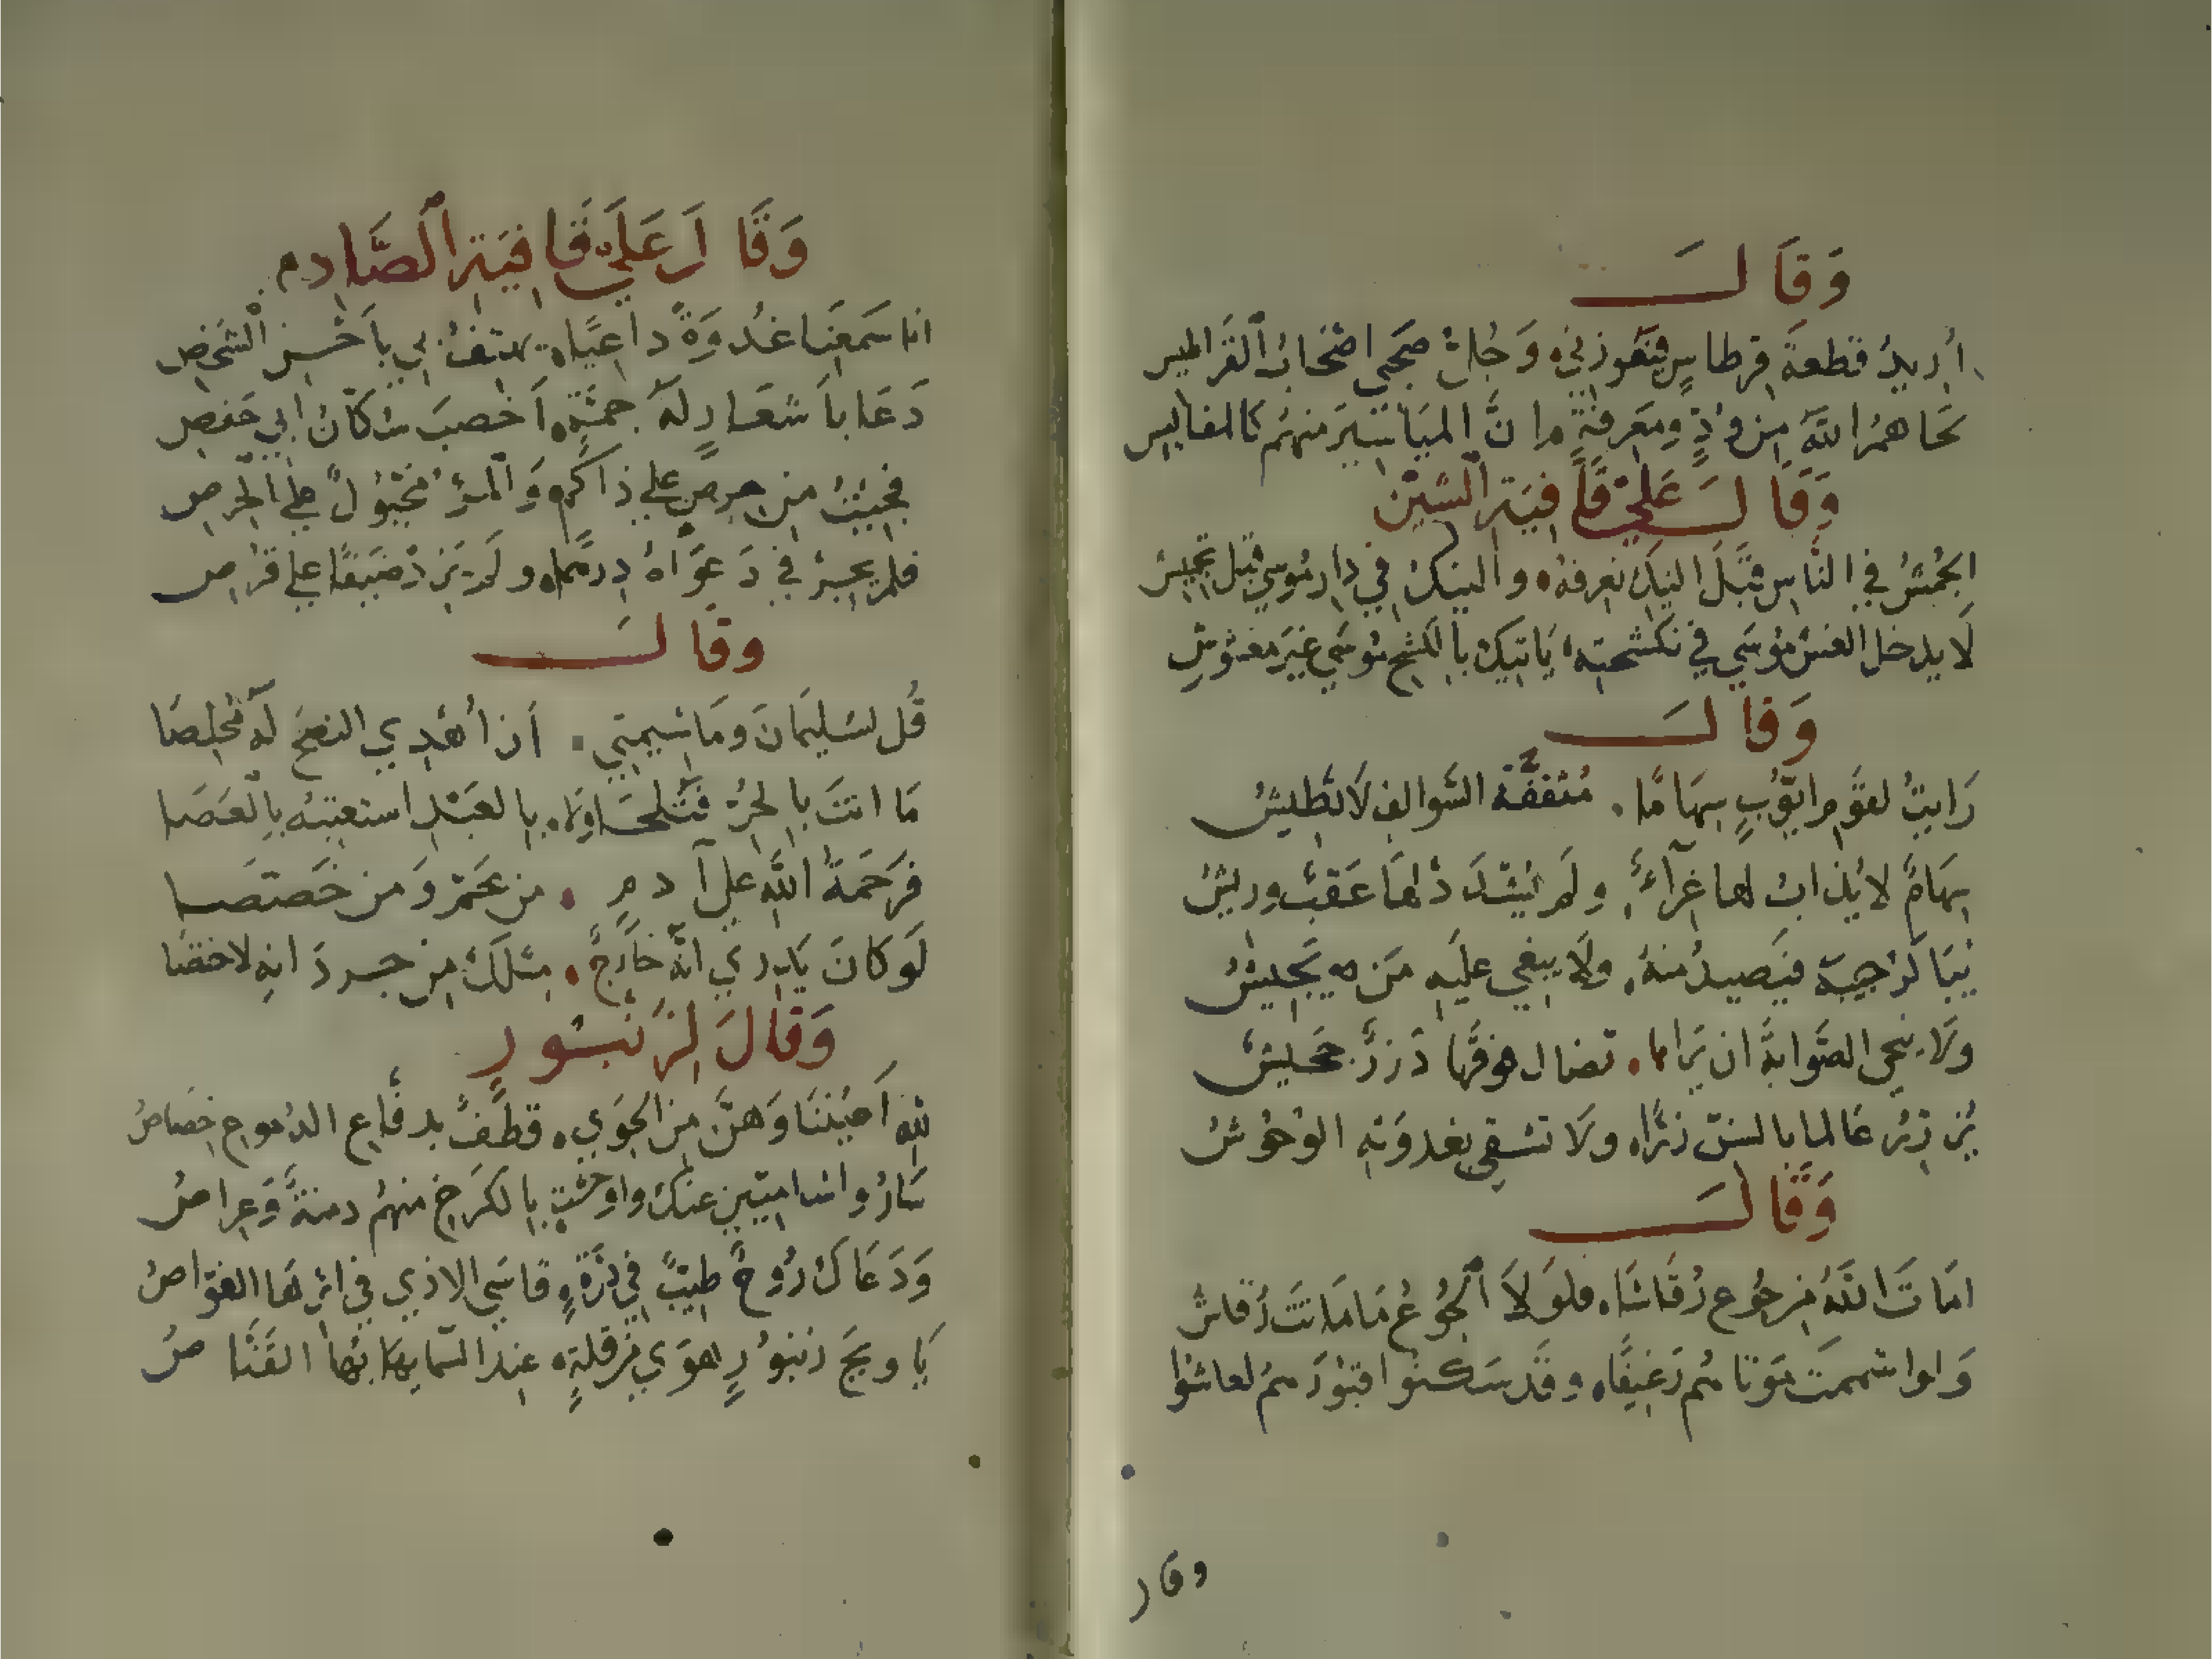 وَقَالَ
اُريدُ قطعةَ قرطاسٍ فتعوزني وَجُلُّ صحبي اصْحابُ القراطيس
نحاهمُ اللهُ من ودٍّ ومعرفةٍ انَّ المياسيرَ منهُم كالمفاليس
وَقَالَ عَلَيْ قَافِيَةِ الشِّيْنْ
الجُمْشُ في النَّاسِ قبْلَ النيكِ نعرفهُ والنيكُ في دارِ مُوسي قبْلَ تجميش
لَا يدخل الغشُّ مُوسَي في نكشحته يَاتيكَ بالكشحِ مُوسَي غيرَ مغشوشِ
وَقَالَ
رَايتُ لقوْسِ ايوّبٍ سِهَامًا مُثقفَّةَ السَّوالفِ لَا تَطيشُ
سِهَامٌ لا يُذابُ لها غِرَآءٌ ولَم يُشْدَدْ لهَا عَقبٌ وريشُ
ولَا ينجي الصَّوابةَ ان يَراها
وَقَالَ
امَاتَ اللهُ من جُوع رُقَاشًا فلَوْلَا الجُوْعُ مَا مَاتتَ رُقاش
وَلوا شممتَ مَوْتَاهُم رَغيفًا وقَد سَكنوا قبُوْرَهمُ لعاشوْا
وقال
وَقَالَ عَلَيَ قَافِيَةِ الصَّادِ
انا سَمعْنا غُدْوَةً داعِيًا يهتفُ بي يا خْسن الشخص
دَعَا باَشعَارٍ لهَ جمّةٍ اَخصبَ سُكانُ ابي حَفصِ
فجيتُ من حرصٍ علي ذاكم وَالمرْؤُ مَجْبوُلٌ علي الحرص
فلم يجزْ في دَعوَاهُ دِرهَما ولَم يَزدْ ضَيفًا علي قرْص
وقَالَ
قُل لسُليمَانَ ومَا شيمتي اَنْ أُهْدِي النصحَ لَهُ مُخلِصَا
مَا انتَ بالحُرّ فتلحَا ولَا بالعَبْدِ استعتبهُ بالعَصَا
فرَحمَةُ اللهِ علي آدمٍ من عَمّ وَمن خَصصَا
لَو كانَ يَدري انّهُ خَارجٌ مثلكَ من جردَانهِ لاختصا
وَقَالَ لِزَنْبُورٍ
للهِ اَعيُننَا وَهنَّ من الجَوَي قطفٌ بدفَّاعِ الدُموعِ خصَاصُ
سَارُوا شاميّين عنكَ واوحَشَت بالكرَخِ منهُم دمنةٌ وَعِراصُ
وَدَعاكَ رُوحٌ طيّبٌ في دُرّةٍ قاسَي الاذي في اثرهَا الغوّاصُ
يَا ويحَ زنبوُرٍ هوَي من قلةٍ عند السَّمَا بهَا القَنَّاصُ